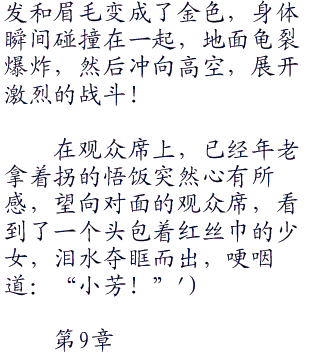 发和眉毛变成了金色，身体
瞬间碰撞在一起，地面龟裂
爆炸，然后冲向高空，展开
激烈的战斗！
在观众席上，已经年老
拿着拐的悟饭突然心有所
感，望向对面的观众席，看
到了一个头包着红丝巾的少
女，泪水夺眶而出，哽咽
道：“小芳！”′）
第9章